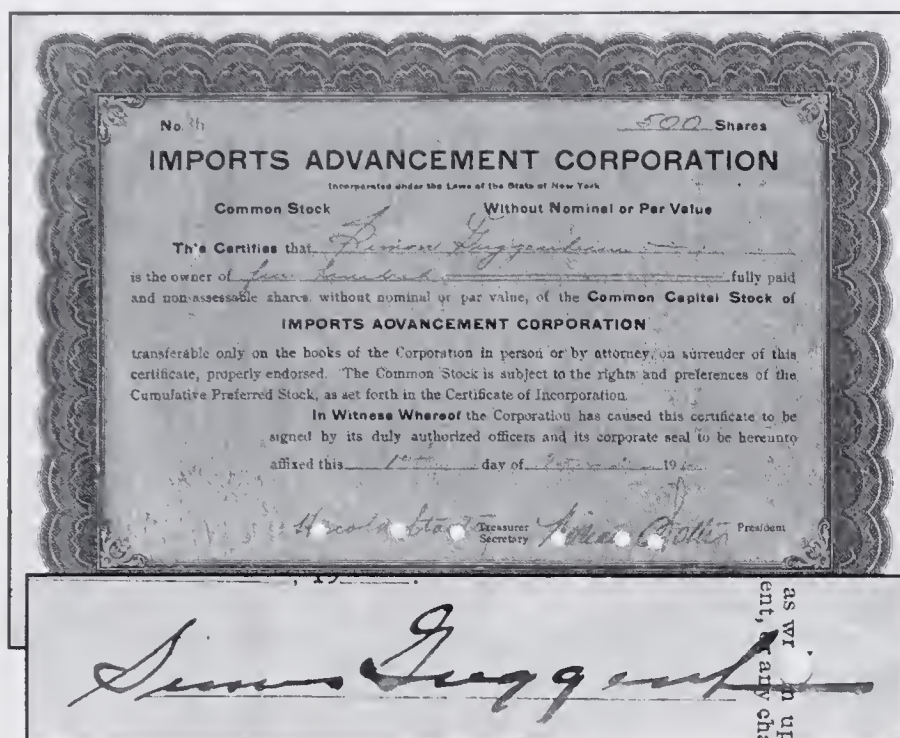 No. 500 Shares
IMPORTS ADVANCEMENT CORPORATION
Incorporated under the Laws of the State of New York
Common Stock Without Nominal or Par Value
Th's Certifies that Simon Guggenheim
is the owner of five hundred fully paid
and non-assessable shares, without nominal or par value, of the Common Capital Stock of
IMPORTS ADVANCEMENT CORPORATION
transferable only on the books of the Corporation in person or by attorney, on surrender of this
certificate, properly endorsed. The Common Stock is subject to the rights and preferences of the
Cumulative Preferred Stock, as set forth in the Certificate of Incorporation.
In Witness Whereof the Corporation has caused this certificate to be
signed by its duly authorized officers and its corporate seal to be hereunto
affixed this day of 19
Harold Treasurer President
Secretary
, 19 .
Simon Guggenheim
as wr in up
ent, or any cha